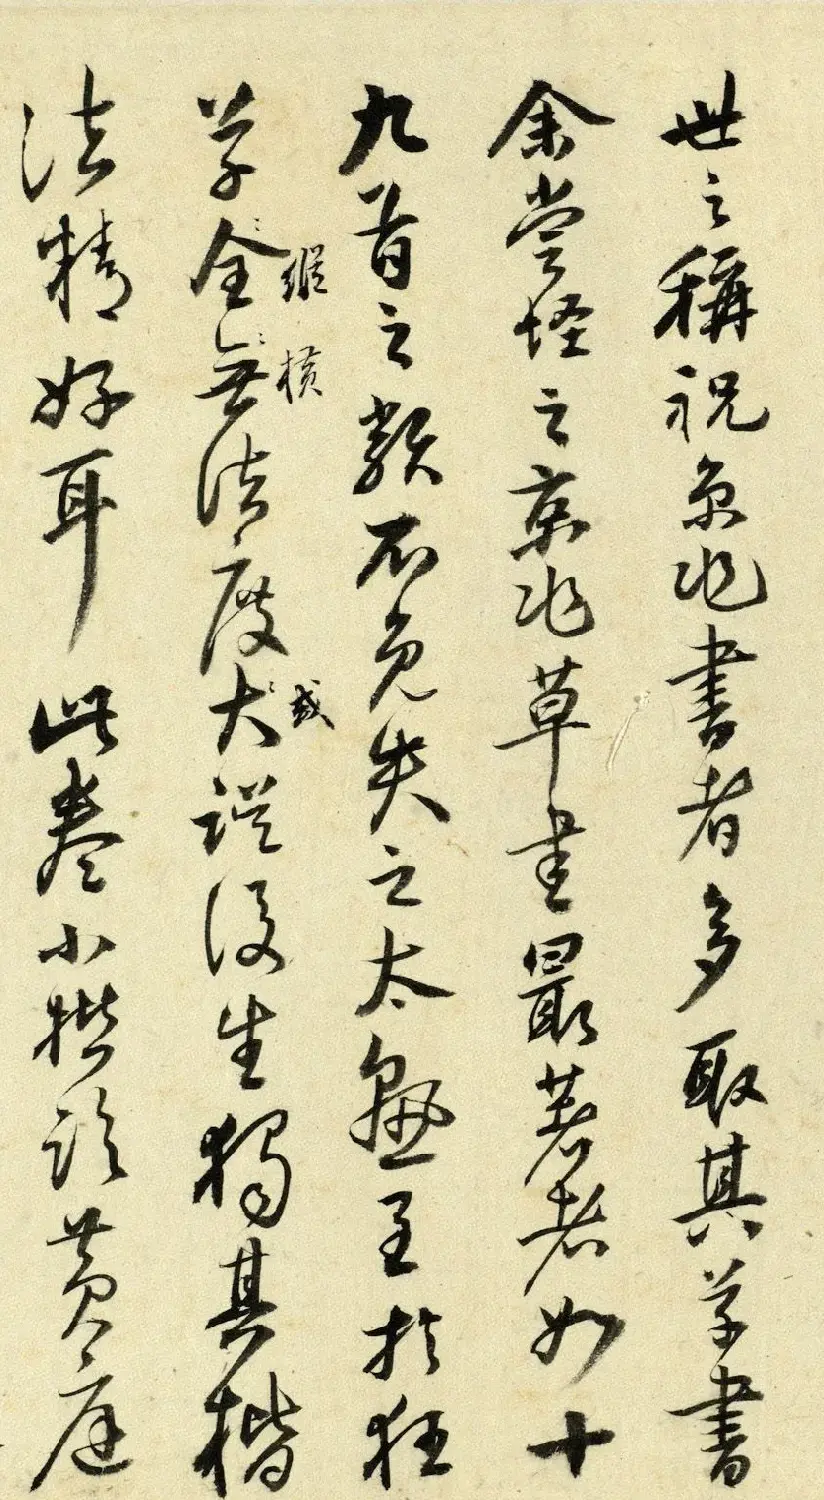 世之稱祝京兆書者多取其草書
余嘗怪之京兆草書最著者如十
九首之類不免失之太至於狂
草全無法度大誤後生獨其楷
縱橫
或
法精好耳此卷小楷臨黃庭